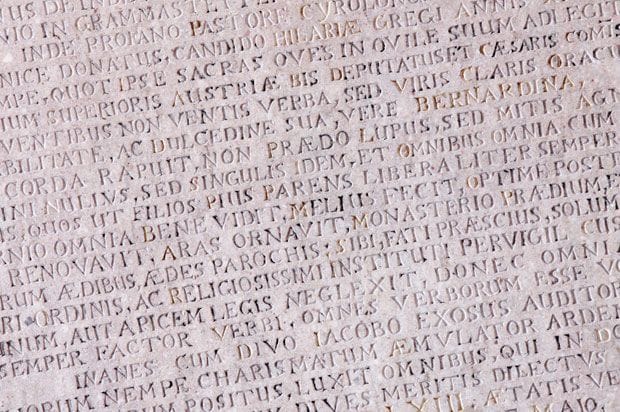 NIO IN GRAMMAT
INDE PROFANO PASTORE
NICE DONATUS, CANDIDO HILARIÆ GREGI ANNIS AD LEGIT
MPE, QUOT IPSE SACRAS OVES IN OVILE SUUM
UM SUPERIORIS AUSTRIÆ BIS DEPUTATUS ET CÆSARIS COMIS
VENTIBUS NON VENTIS VERBA, SED VIRIS CLARIS ORACU
BILITATE, AC DULCEDINE SUA VERE BERNARDINA,
CORDA RAPUIT NON PRÆDO LUPUS, SED MITIS AGN
NI NULIVS, SED SINGULIS IDEM, ET OMNIBUS OMNIA CUM
QUOS UT FILIOS PIUS PARENS LIBERALITER SEMPER
RNIO OMNIA BENE VIDIT, MELIUS FECIT, OPTIME POSTE
RENOVAVIT ARAS ORNAVIT, MONASTERIO PRÆDIUM, E
RUM ÆDIBUS, ÆDES PAROCHIS, SIBI, FATI PRÆSCIUS, SOLUM
RI, ORDINIS, AC RELIGIOSISSIMI INSTITUTI PERVIGIL CUS
NUM, AUT APICEM LEGIS NEGLEXIT, DONEC OMNIA
SEMPER FACTOR VERBI, OMNES VERBORUM ESSE VO
INANES. CUM DIVO IACOBO EXOSUS AUDITOR
ORUM NEMPE CHARISMATUM ÆMULATOR ARDEN
HORUM POSITUS LUXIT OMNIBUS, QUI IN DO
DIVES MERITIS DILECTUS
XLIII ÆTATIS VE